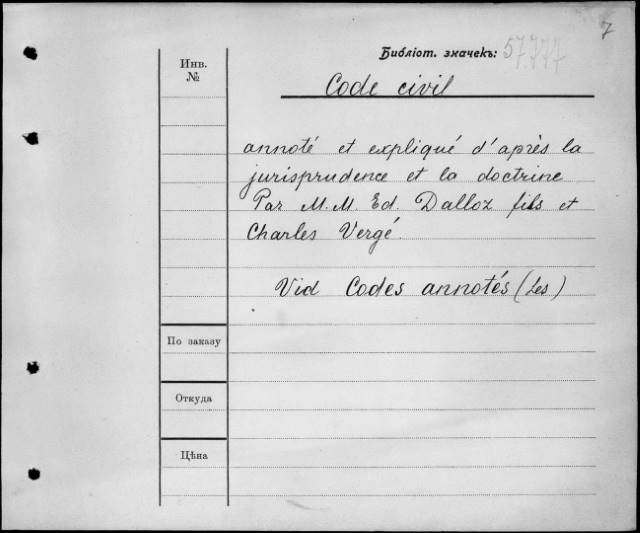 7
Библіот. значекъ: 57777
Инв.
№
Code civil
annoté et expliqué d'après la
jurisprudence et la doctrine
Par M.M. Ed. Dalloz fils et
Charles Vergé.
Vid Codes annotés (Les)
По заказу
Откуда
Цѣна